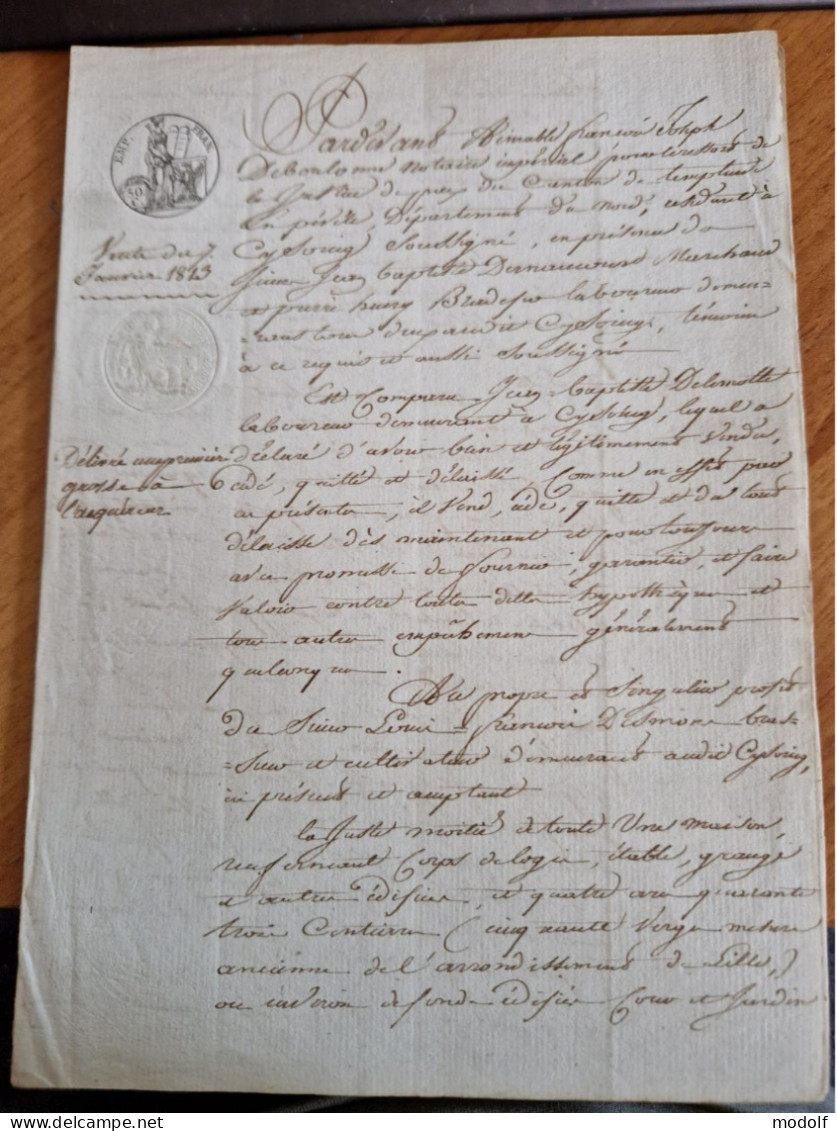 EMP. FRAN.
50
C.
Vente du 7.
Janvier 1813
Délivré une première
grosse à
l'acquéreur
Pardevant Aimable François Joseph
Deboulonne notaire impérial pour le ressort de
la Justice de paix du Canton de templeuve
En pévèle, Département du Nord, résidant à
Cysoing Soussigné, en présence de
Sieurs Jean baptiste Marchand
et pierre henry laboureur demeu-
-rant tous deux audit Cysoing, témoins
à ce requis et aussi Soussignés
Est Comparu Jean-baptiste Delemotte
laboureur demeurant à Cysoing, lequel a
déclaré d'avoir bien et légitimement Vendu,
Cédé, quitté et délaissé, Comme en effet par
ces présentes, il Vend, cède, quitte et du tout
délaisse dès maintenant et pour toujours
avec promesse de fournir, garantir, et faire
Valoir contre toutes dettes hypothèques et
tous autres empêchements généralement
quelconques.
Au propre et Singulier profit
du Sieur Louis-françois Desmons bras-
-seur et cultivateur demeurant audit Cysoing,
ici présent et acceptant
la Juste moitié de toute Une maison,
renfermant Corps de logis, étable, grange
et autres édifices, et quatre ares quarante
trois Centiares (Cinquante Verges mesure
ancienne de l'arrondissement de Lille,)
ou environ de fonds édifiés Cour et Jardin
modolf